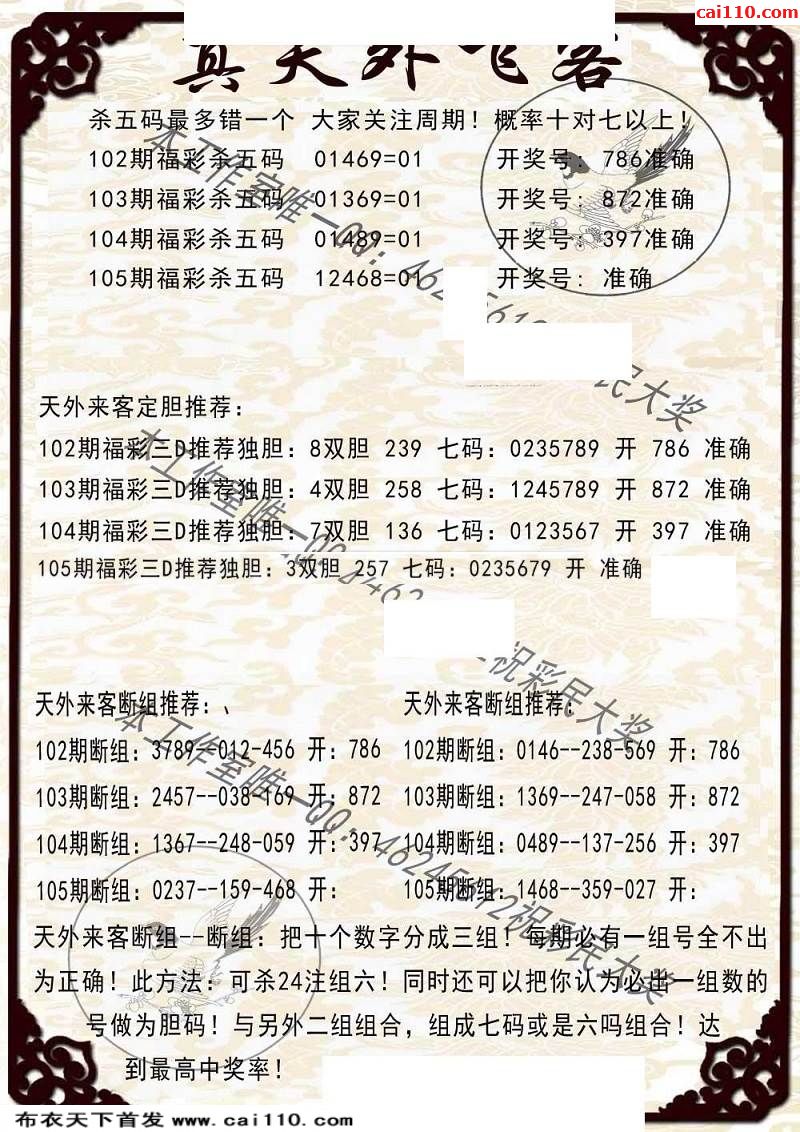 cai110.com
真天外飞客
杀五码最多错一个 大家关注周期！概率十对七以上！
102期福彩杀五码 01469=01 开奖号: 786准确
103期福彩杀五码 01369=01 开奖号: 872准确
104期福彩杀五码 01489=01 开奖号: 397准确
105期福彩杀五码 12468=01 开奖号: 准确
天外来客定胆推荐:
102期福彩三D推荐独胆: 8双胆 239 七码: 0235789 开 786 准确
103期福彩三D推荐独胆: 4双胆 258 七码: 1245789 开 872 准确
104期福彩三D推荐独胆: 7双胆 136 七码: 0123567 开 397 准确
105期福彩三D推荐独胆: 3双胆 257 七码: 0235679 开 准确
天外来客断组推荐: 、 天外来客断组推荐:
102期断组: 3789--012-456 开: 786 102期断组: 0146--238-569 开: 786
103期断组: 2457--038-169 开: 872 103期断组: 1369--247-058 开: 872
104期断组: 1367--248-059 开: 397 104期断组: 0489--137-256 开: 397
105期断组: 0237--159-468 开: 105期断组: 1468--359-027 开:
天外来客断组--断组: 把十个数字分成三组！每期必有一组号全不出
为正确！此方法: 可杀24注组六！同时还可以把你认为必出一组数的
号做为胆码！与另外二组组合，组成七码或是六吗组合！达
到最高中奖率！
本工作室唯一QQ: 46245619 民大奖
本工作室唯一QQ: 462 祝彩民大奖
本工作室唯一QQ: 46245612祝彩民大奖
布衣天下首发 www.cai110.com